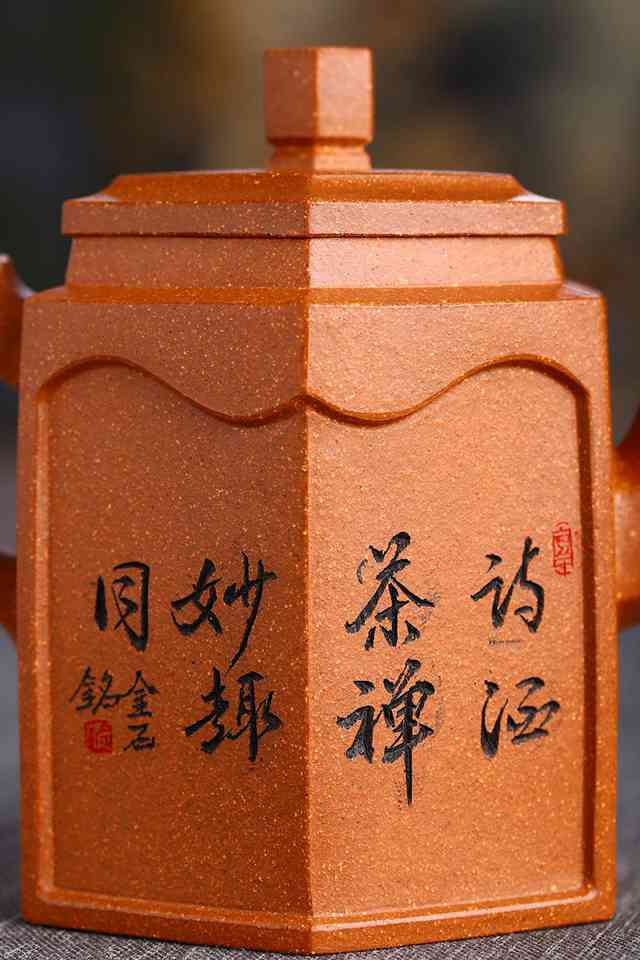 诗酒
茶禅
妙趣
同
金石
铭